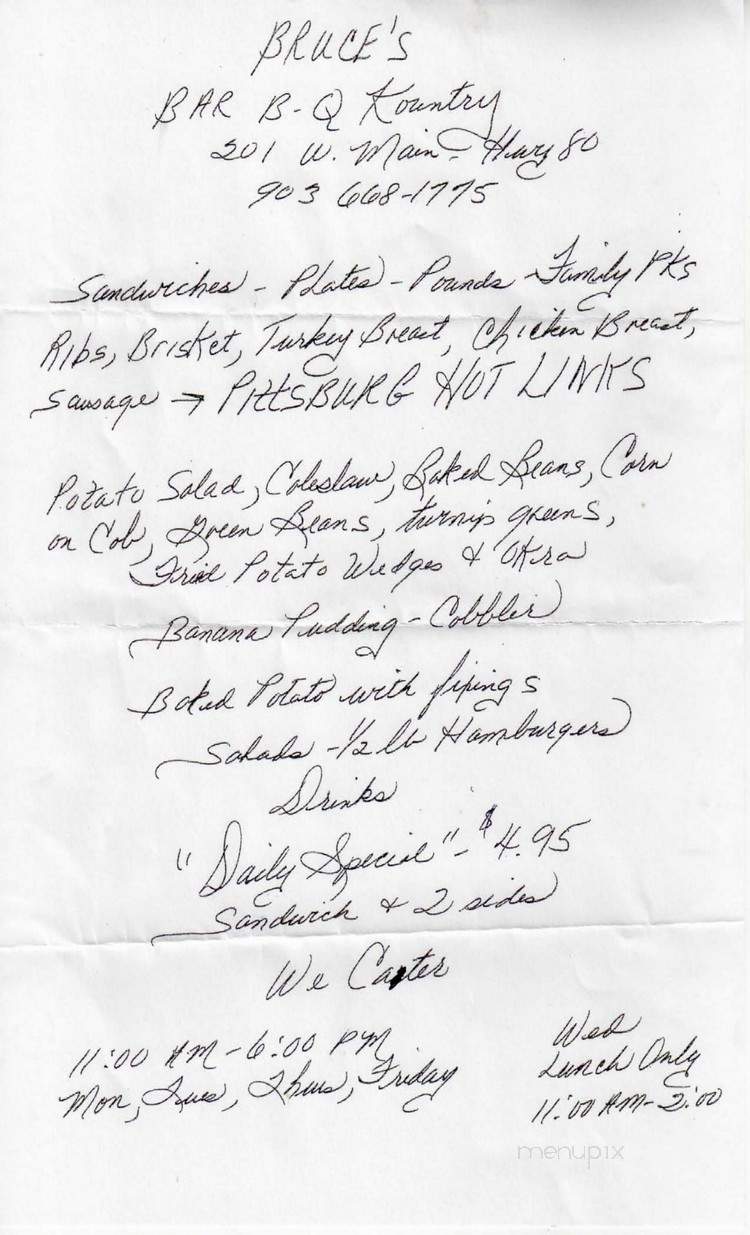 BRUCE'S
BAR B-Q Kountry
201 W. Main - Hwy 80
903 668-1775
Sandwiches - Plates - Pounds - Family PKs
Ribs, Brisket, Turkey Breast, Chicken Breast,
Sausage → PITTSBURG HOT LINKS
Potato Salad, Coleslaw, Baked Beans, Corn
on Cob, Green Beans, turnip greens,
Fried Potato Wedges & Okra
Banana Pudding - Cobbler
Baked Potato with fixings
Salads - 1/2 lb Hamburgers
Drinks
"Daily Special" - $4.95
Sandwich & 2 sides
We Cater
11:00 AM - 6:00 PM
Mon, Tues, Thurs, Friday
Wed
Lunch Only
11:00 AM - 2:00
menupix